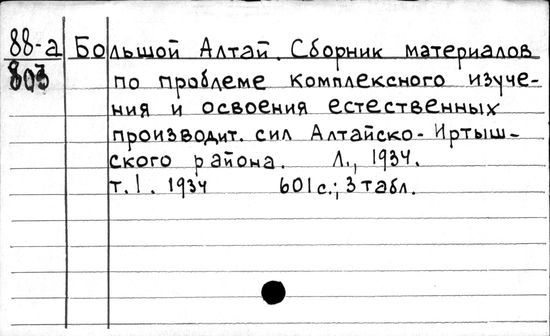 88-а Большой Алтай. Сборник материалов
803 по проблеме комплексного изуче-
ния и освоения естественных
производит. сил Алтайско-Иртыш-
ского района. Л., 1934.
т.1. 1934 601с.; 3 табл.